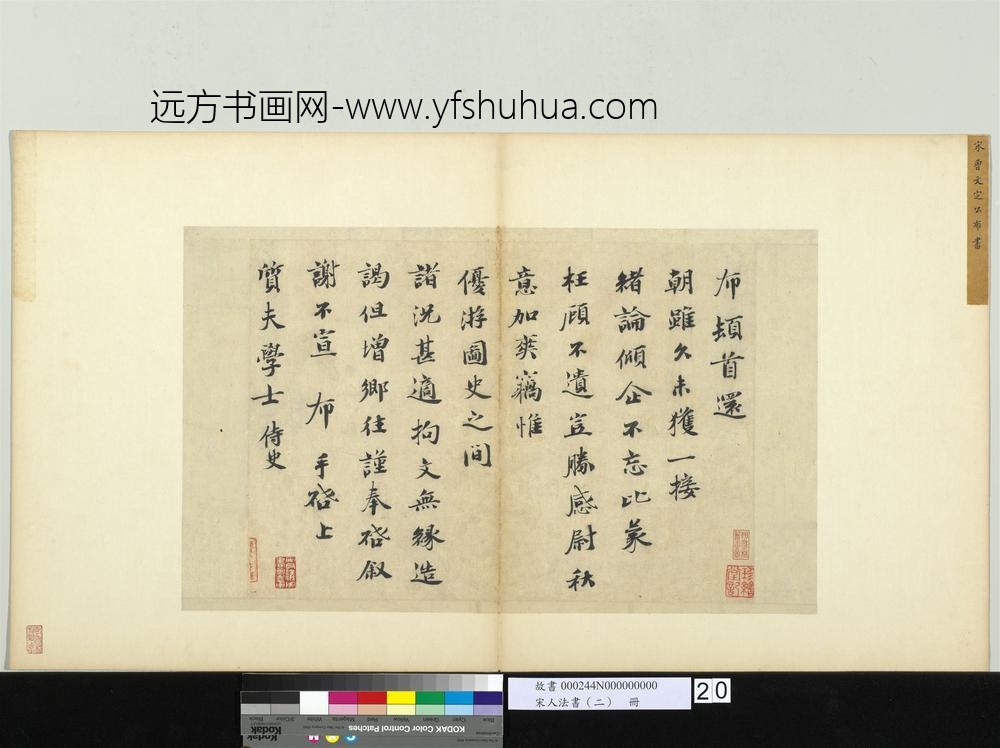 远方书画网-www.yfshuhua.com
宋曾文定公布書
布頓首還
朝雖久未獲一接
緒論傾企不忘比蒙
枉顧不遺豈勝感尉秋
意加爽竊惟
優游圖史之間
諸況甚適拘文無緣造
謁但增鄉往謹奉啓叙
謝不宣 布 手啓上
質夫學士 侍史
故書 000244N000000000
宋人法書（二） 冊
20
Kodak
KODAK Color Control Patches
Blue
Cyan
Green
Yellow
Red
Magenta
White
3/Color
Black